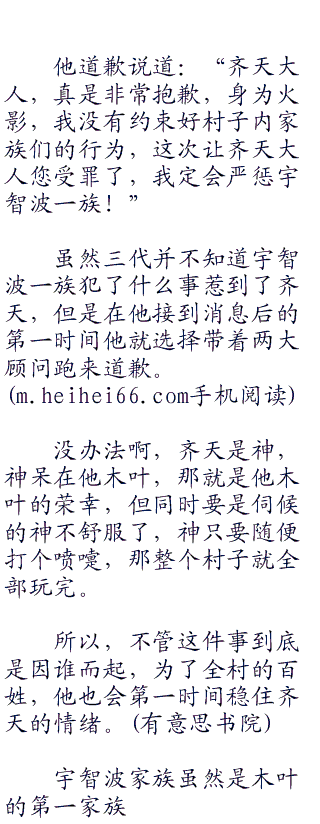 他道歉说道：“齐天大
人，真是非常抱歉，身为火
影，我没有约束好村子内家
族们的行为，这次让齐天大
人您受罪了，我定会严惩宇
智波一族！”
虽然三代并不知道宇智
波一族犯了什么事惹到了齐
天，但是在他接到消息后的
第一时间他就选择带着两大
顾问跑来道歉。
(m.heihei66.com手机阅读)
没办法啊，齐天是神，
神呆在他木叶，那就是他木
叶的荣幸，但同时要是伺候
的神不舒服了，神只要随便
打个喷嚏，那整个村子就全
部玩完。
所以，不管这件事到底
是因谁而起，为了全村的百
姓，他也会第一时间稳住齐
天的情绪。(有意思书院)
宇智波家族虽然是木叶
的第一家族